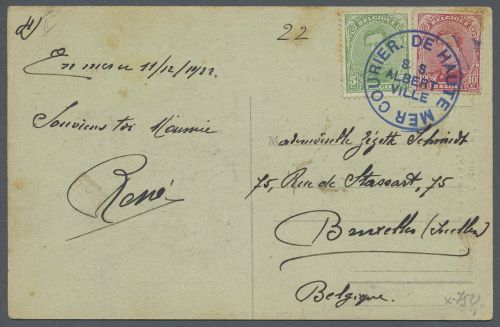 22
En mer ce 11/12/1922.
Souviens toi Mounie
René
BELGIQUE
5
BELGIQUE
10
COURIER. DE HAUTE MER
S S
ALBERT
VILLE
Mademoiselle Zézette Schmidt
75, Rue de Stassart, 75
Bruxelles (Ixelles)
Belgique.